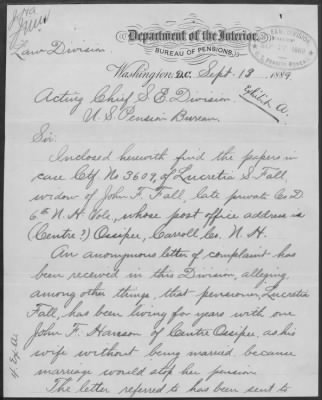 Law Division.
Department of the Interior,
BUREAU OF PENSIONS,
Washington, D.C. Sept. 13, 1889.
Exhibit A.
Acting Chief S. E. Division.
U. S. Pension Bureau.
Sir:
Inclosed herewith find the papers in
case Ctf. No 3609, of Lucretia S. Fall,
widow of John F. Fall, late private Co. D
6th N. H. Vols, whose post office address is
(Centre?) Ossipee, Carroll Co. N. H.
An anonymous letter of complaint has
been received in this Division, alleging,
among other things, that pensioner, Lucretia
Fall, has been living for years with one
John F. Hanson of Centre Ossipee, as his
wife without being married, because
marriage would stop her pension.
The letter referred to has been sent to
4 Ex. A.